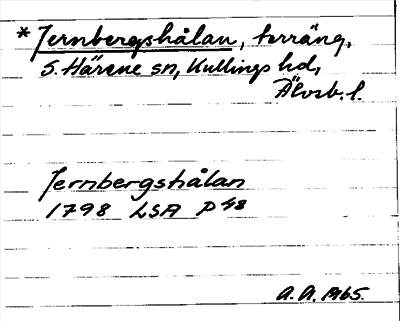 * Jernbergshålan, terräng,
S. Härene sn, Kullings hd,
Älvsb. l.
Jernbergshålan
1798 LSA P48
A. A. 1965.